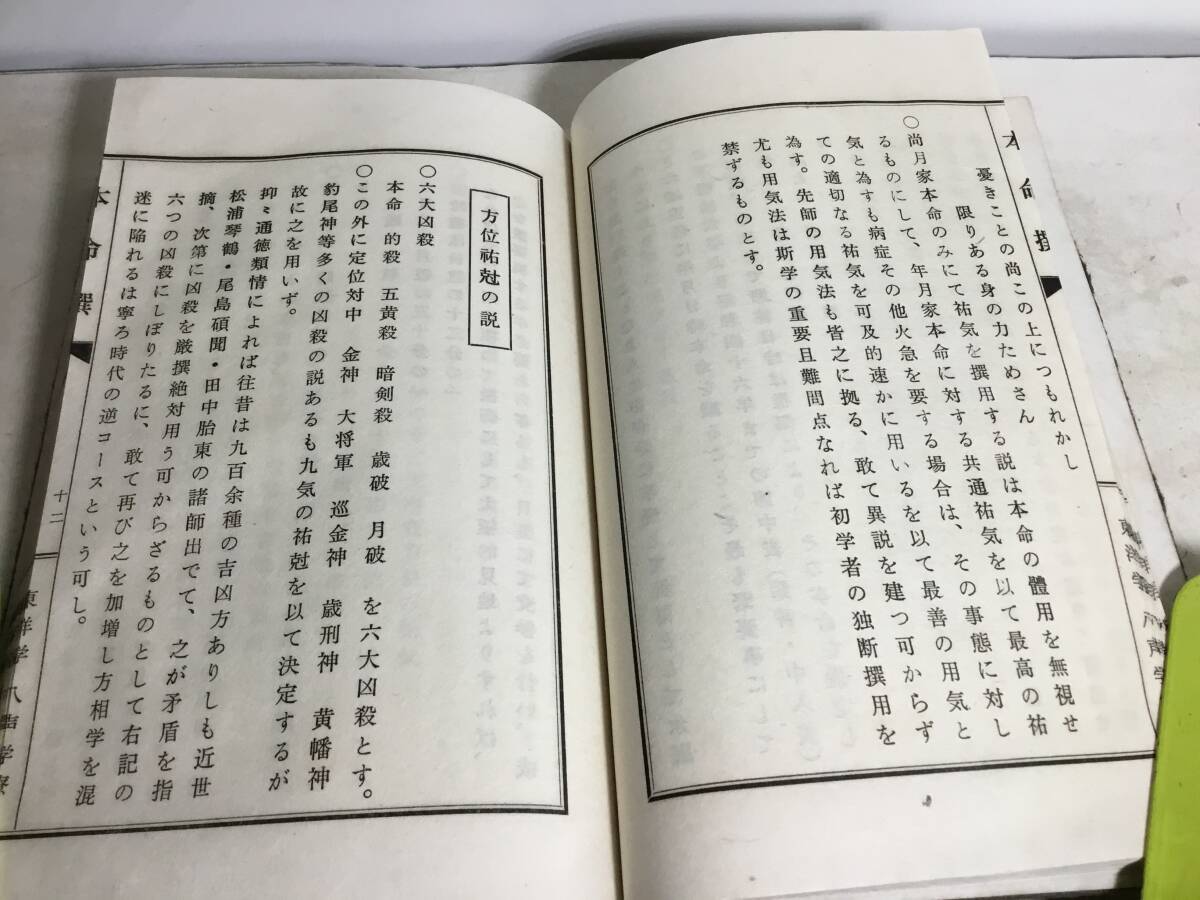 本命撰
憂きことの尚この上につもれかし
限りある身の力ためさん
○尚月家本命のみにて祐気を撰用する説は本命の體用を無視せ
るものにして、年月家本命に対する共通祐気を以て最高の祐
気と為すも病症その他火急を要する場合は、その事態に対し
ての適切なる祐気を可及的速かに用いるを以て最善の用気と
為す。先師の用気法も皆之に拠る、敢て異説を建つ可からず
尤も用気法は斯学の重要且難問点なれば初学者の独断撰用を
禁ずるものとす。
方位祐尅の説
○六大凶殺
本命殺 的殺 五黄殺 暗剣殺 歳破 月破 を六大凶殺とす。
○この外に定位対中 金神 大将軍 巡金神 歳刑神 黄幡神
豹尾神等多くの凶殺の説あるも九気の祐尅を以て決定するが
故に之を用いず。
抑〻通徳類情によれば往昔は九百余種の吉凶方ありしも近世
松浦琴鶴・尾島碩聞・田中胎東の諸師出でて、之が矛盾を指
摘、次第に凶殺を厳撰絶対用う可からざるものとして右記の
六つの凶殺にしぼりたるに、敢て再び之を加増し方相学を混
迷に陥れるは寧ろ時代の逆コースという可し。
本命撰
十二
東洋学
学寮